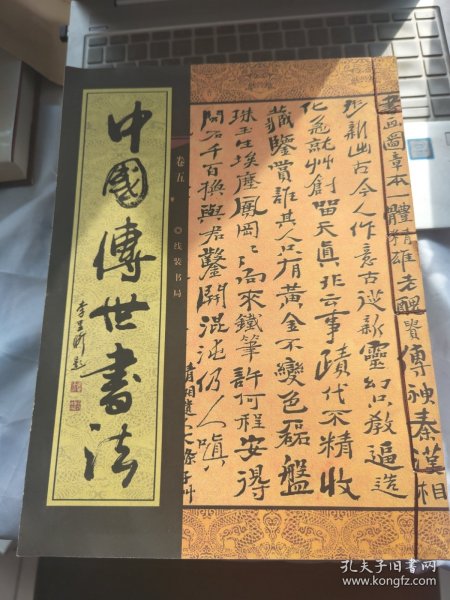 中國傳世書法
李呈修題
卷五
◎线装书局
畫圖章本體精雄老醜貴傳神秦漢相
形新出古今人作意古從新靈幻只教逼造
化急就艸創留天真非云事蹟代不精收
藏鑒賞誰其人只有黃金不變色磊盤
珠玉生埃塵鳳岡二二來鐵筆許何程安得
閒石千百換與君鑿開混沌仍人嗔
孔夫子旧书网
www.kongfz.com